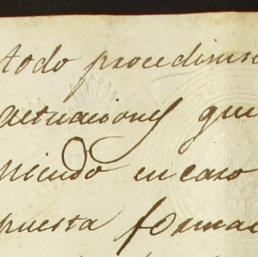 todo procedimie
actuaciones que
niendo en caso
puesta formac